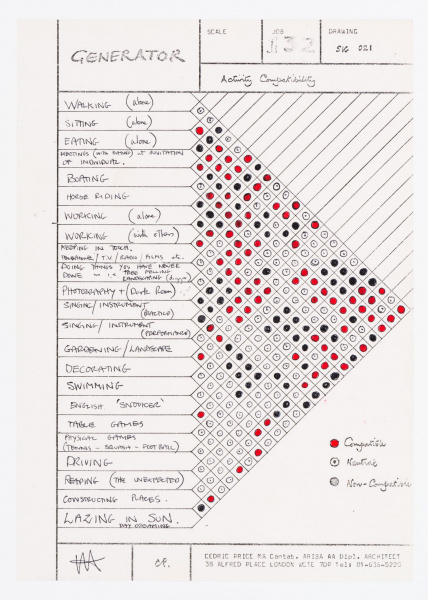 GENERATOR
SCALE
JOB
DRAWING
132
SIG 021
Activity Compatibility
WALKING (alone)
SITTING (alone)
EATING (alone)
MEETINGS (WITH OTHERS) AT INVITATION
OF INDIVIDUAL.
BOATING
HORSE RIDING
WORKING (alone)
WORKING (with others)
KEEPING IN TOUCH.
T.V / RADIO / FILMS etc.
DOING THINGS YOU HAVE NEVER
DONE - i.e. TREE FELLING
LANDSCAPING
PHOTOGRAPHY + (Dark Room)
SINGING / INSTRUMENT
(PRACTICE)
SINGING / INSTRUMENT
(PERFORMANCE)
GARDENING / LANDSCAPE
DECORATING
SWIMMING
ENGLISH 'SNOOKER'
TABLE GAMES
PHYSICAL GAMES
(TENNIS - SQUASH - FOOTBALL)
DRIVING
READING (THE UNEXPECTED)
CONSTRUCTING PLACES.
LAZING IN SUN.
DAY DREAMING
Compatible
Neutral
Non-Compatible
CP.
CEDRIC PRICE MA Cantab, ARIBA AA Dipl, ARCHITECT
38 ALFRED PLACE LONDON WC1E 7DP Tel: 01-636-5220